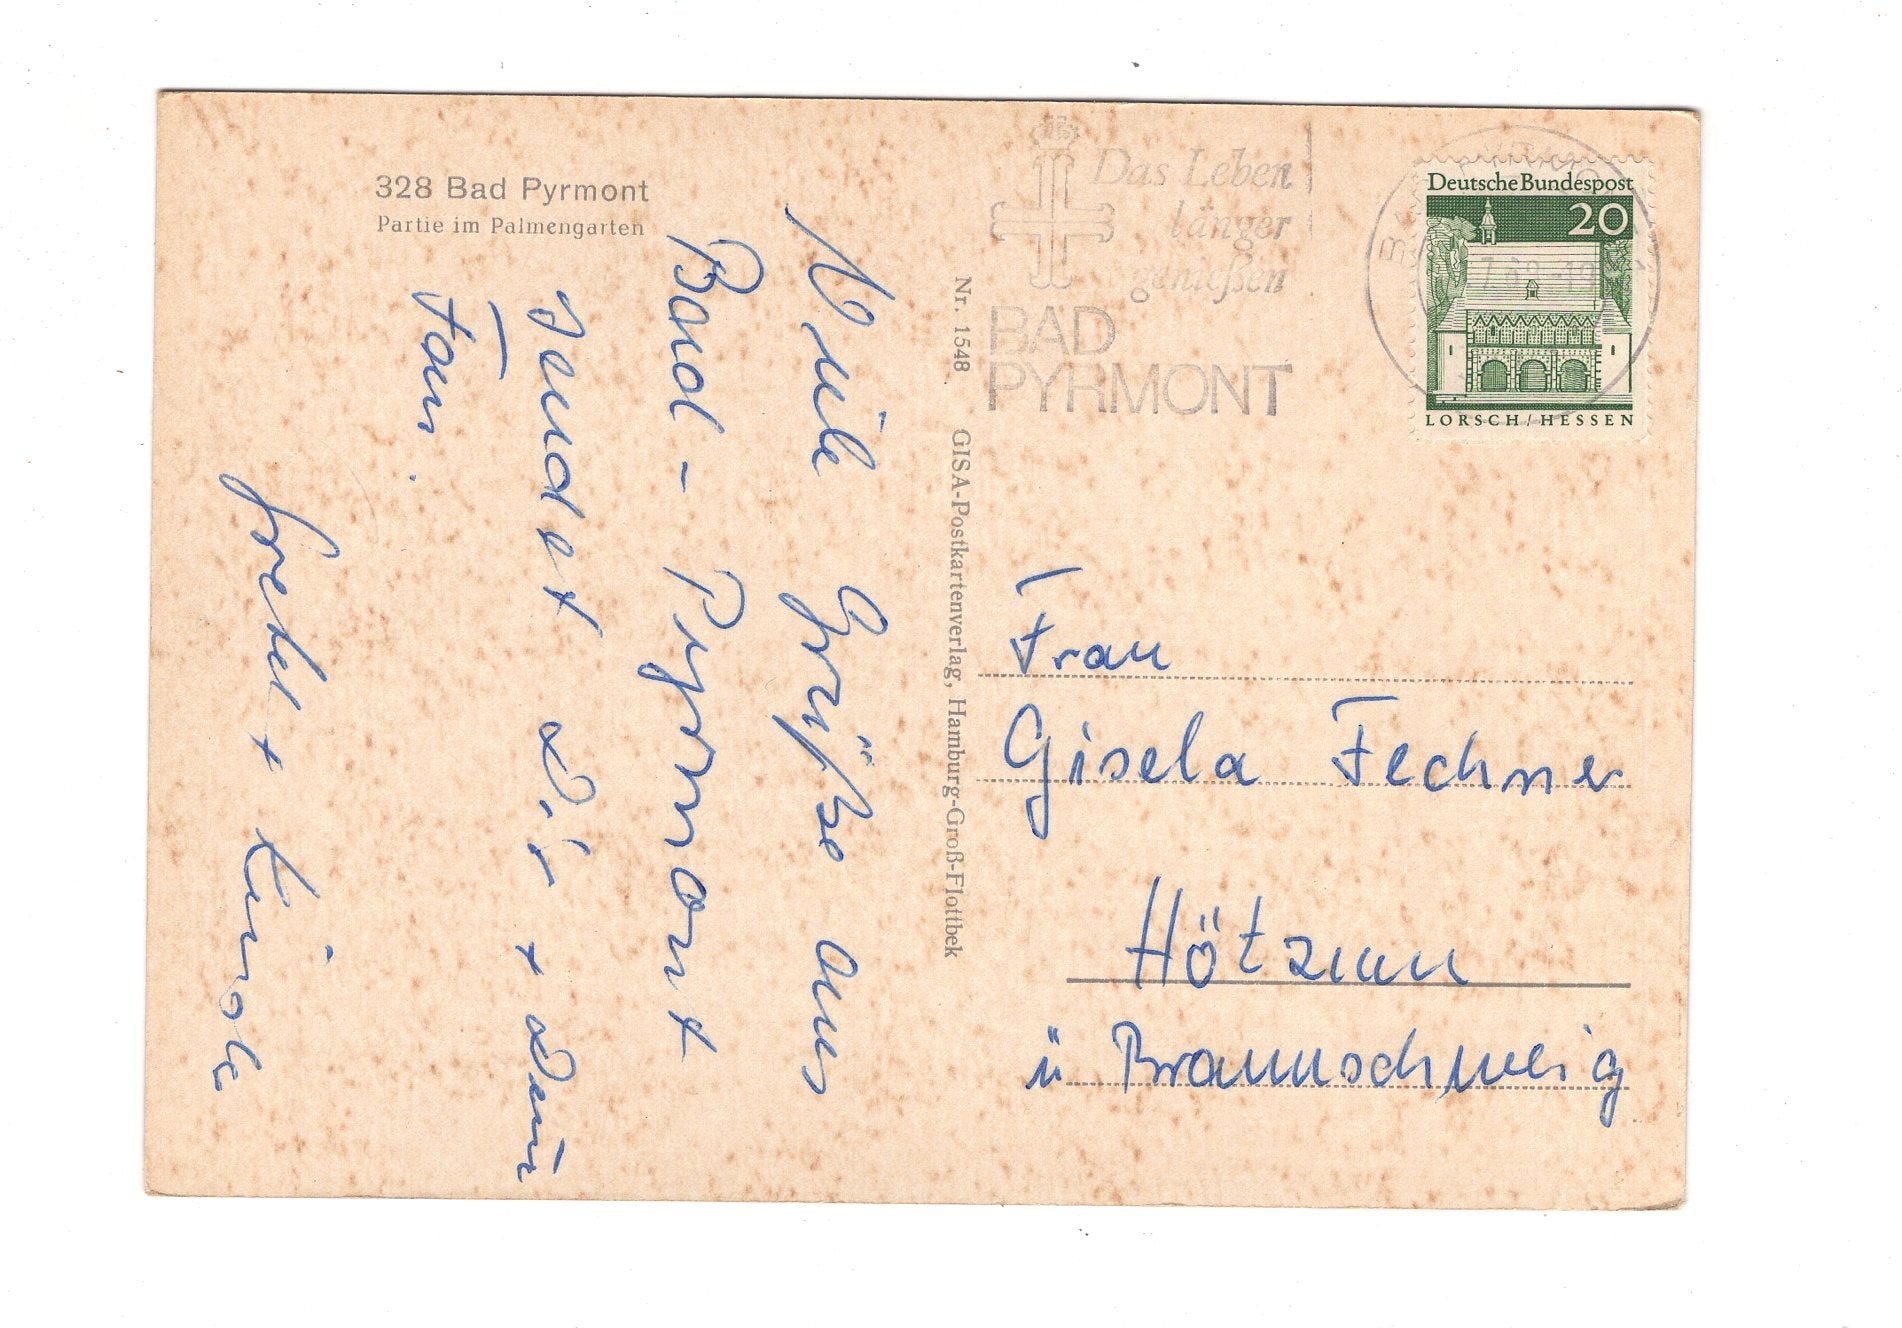 328 Bad Pyrmont
Partie im Palmengarten
Viele Grüße aus
Bad-Pyrmont
sendet Dir + Dein
Fam.
Nr. 1548 GISA-Postkartenverlag, Hamburg-Groß-Flottbek
Das Leben
länger
genießen
BAD
PYRMONT
Deutsche Bundespost
20
LORSCH/HESSEN
Frau
Gisela Fechner
Hötzum
ü Braunschweig